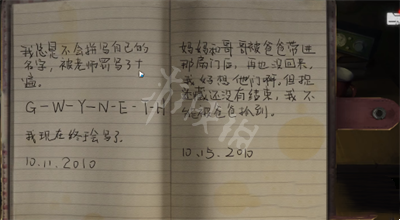 我总是不会拼写自己的
名字，被老师罚写了十
遍。
G-W-Y-N-E-T-H
我现在终于会写了
10.11.2010
妈妈和哥哥被爸爸带进
那扇门后，再也没回来，
我好想他们啊，但捉
迷藏还没有结束，我不
能被爸爸捡到。
10.15.2010
游侠